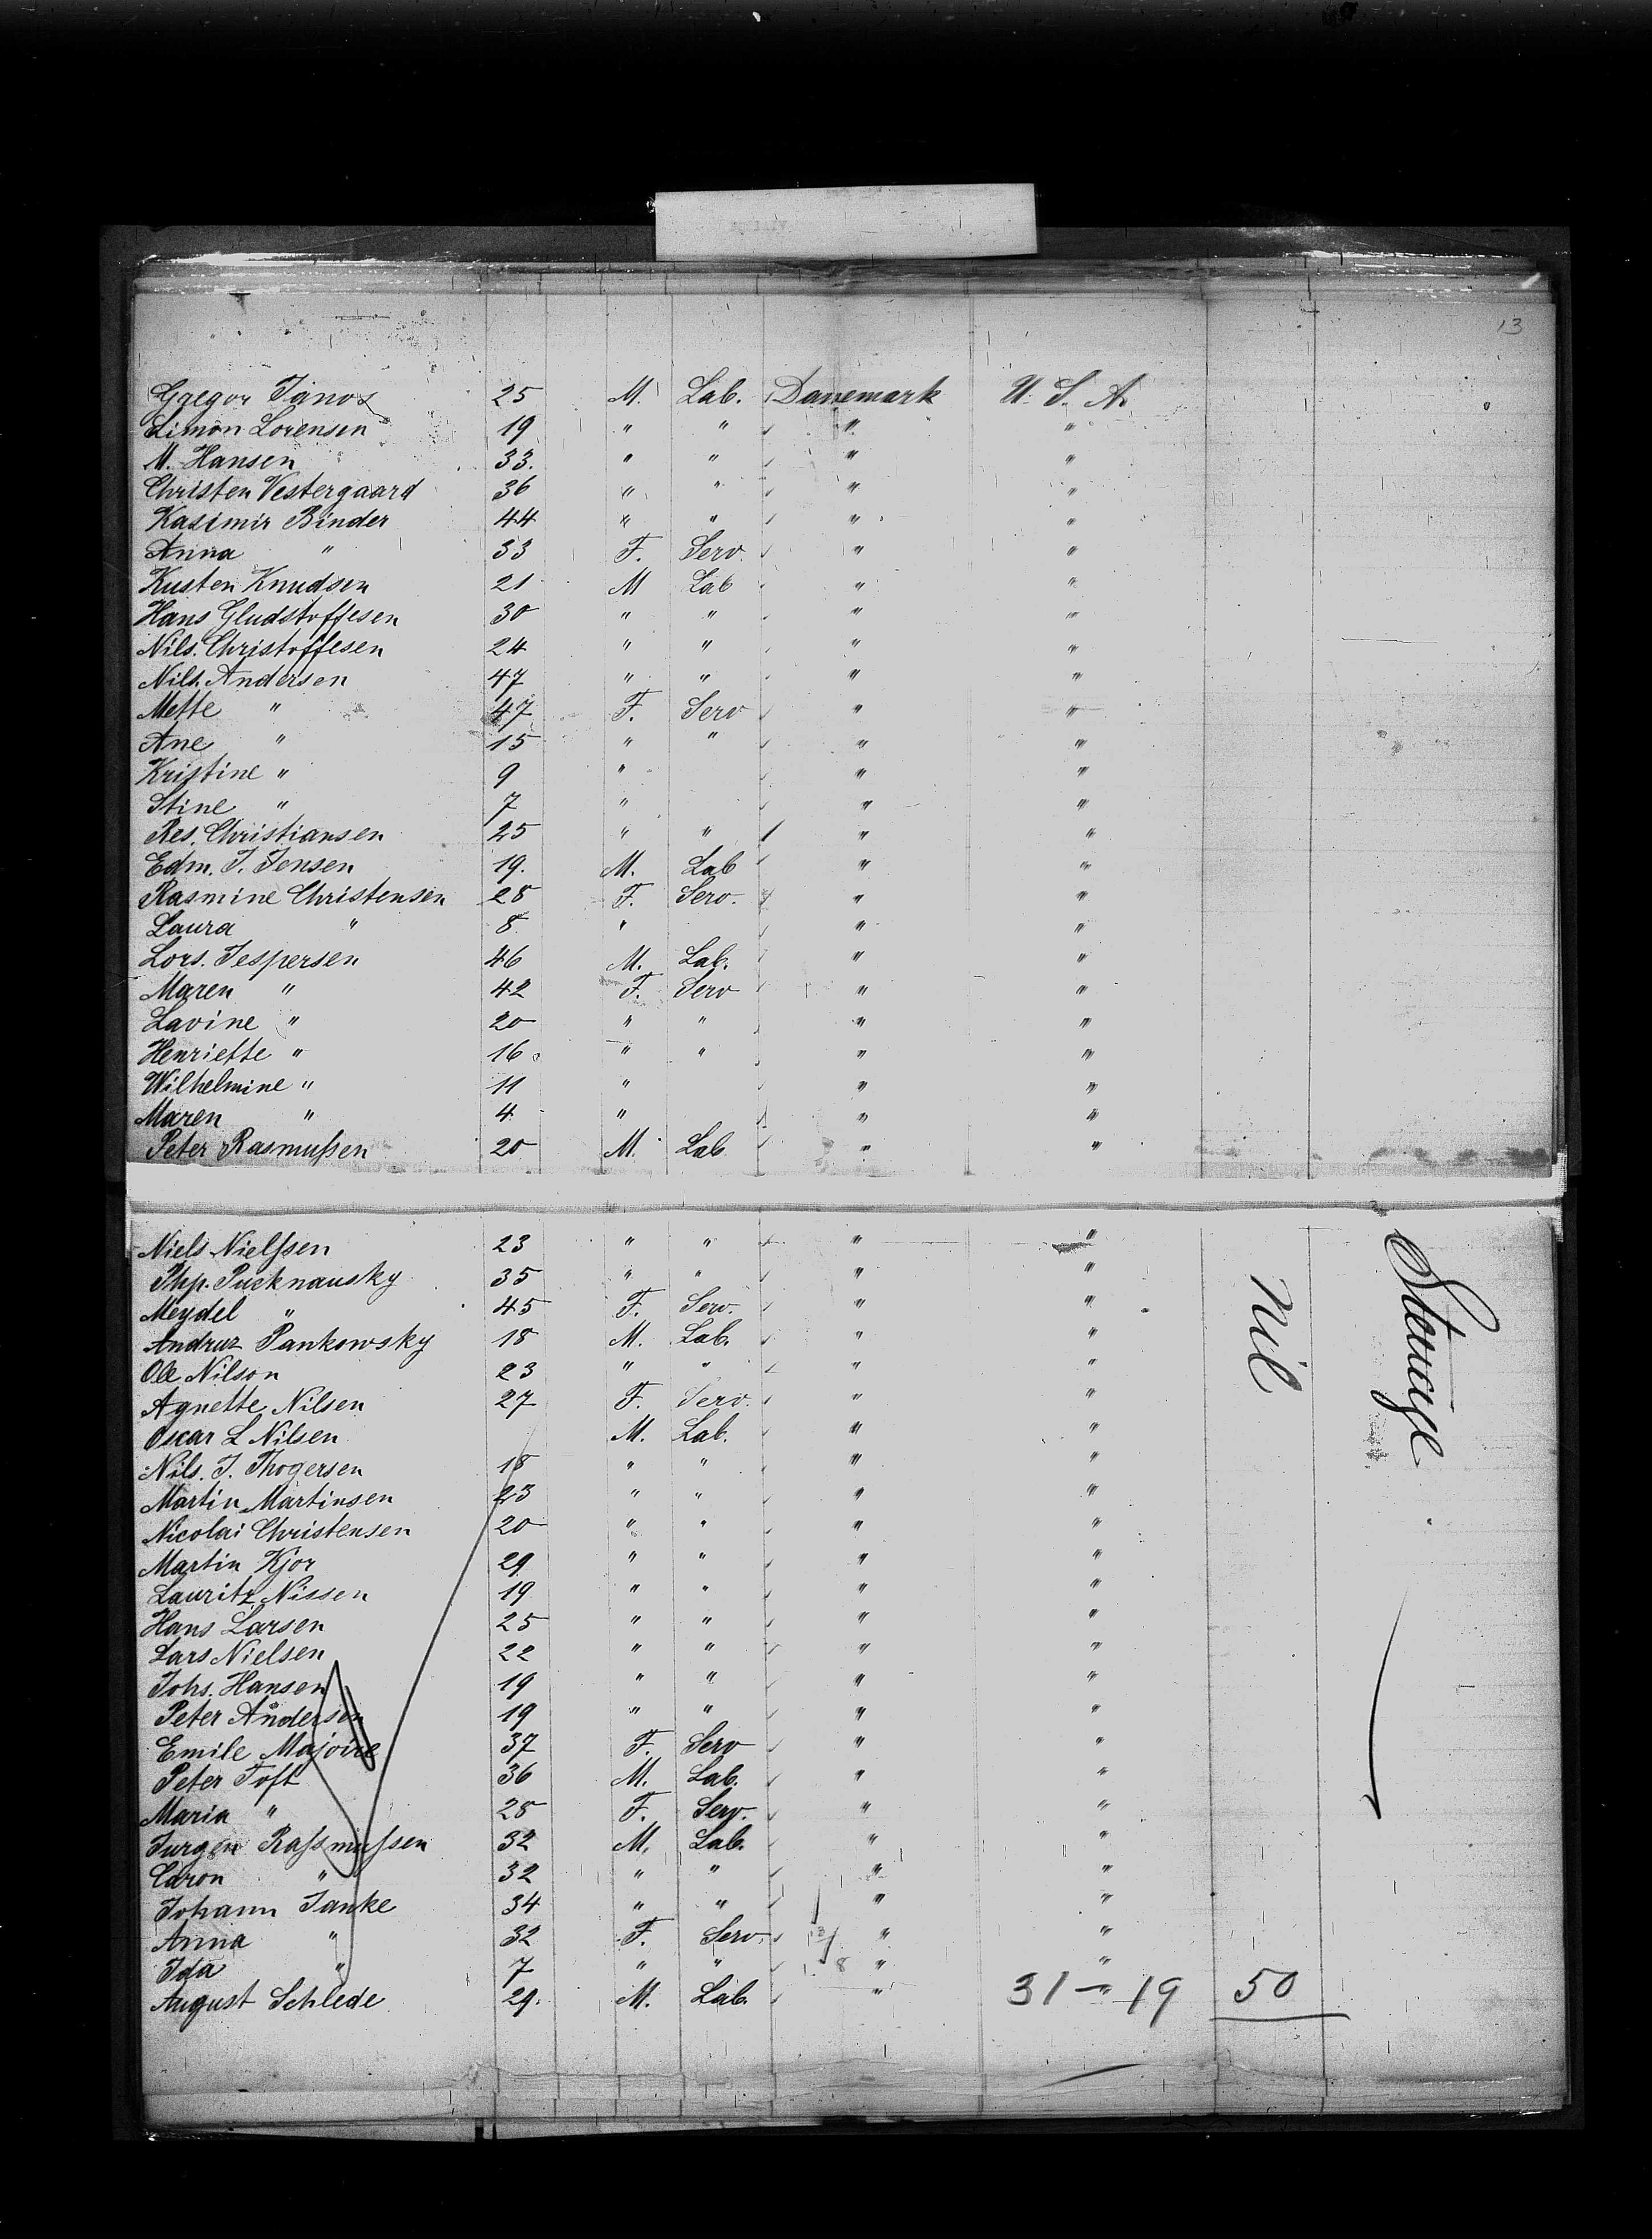 13
Gregor Janos 25 M. Lab. Danemark U. S. A.
Simon Lorensen 19 " " " "
M. Hansen 33. " " " "
Christen Vestergaard 36 " " " "
Kasimir Binder 44 " " " "
Anna " 33 F. Serv. " "
Kusten Knudsen 21 M Lab " "
Hans Gludstoffesen 30 " " " "
Nils. Christoffesen 24 " " " "
Nils. Andersen 47 " " " "
Mette " 47 F. Serv " "
Ane " 15 " " " "
Kristine " 9 " " "
Stine " 7 " " "
Res. Christiansen 25 " " " "
Edm. J. Jensen 19. M. Lab " "
Rasmine Christensen 28 F. Serv. " "
Laura " 8 " " "
Lors. Jespersen 46 M. Lab. " "
Maren " 42 F. Serv " "
Lavine " 20 " " " "
Henriette " 16 " " " "
Wilhelmine " 11 " " "
Maren " 4 " " "
Peter Rasmussen 20 M. Lab " "
Niels Nielssen 23 " " " "
Php. Pucknausky 35 " " " "
Meydel " 45 F. Serv. " "
Andruz Pankowsky 18 M. Lab. " "
Ole Nilson 23 " " " "
Agnette Nilsen 27 F. Serv. " "
Oscar L Nilsen M. Lab. " "
Nils. J. Thogersen 18 " " " "
Martin Martinsen 23 " " " "
Nicolai Christensen 20 " " " "
Martin Kjor 29 " " " "
Lauritz Nissen 19 " " " "
Hans Larsen 25 " " " "
Lars Nielsen 22 " " " "
Johs. Hansen 19 " " " "
Peter Andersen 19 " " " "
Emile Majoire 37 F. Serv " "
Peter Toft 36 M. Lab. " "
Maria " 28 F. Serv. " "
Jurgen Rassmussen 32 M. Lab. " "
Caron " 32 " " " "
Johann Janke 34 " " " "
Anna " 32 F. Serv. " "
Ida " 7 " " " "
August Schlede 29. M. Lab. " "
31 - 19 50
nil
Steerage